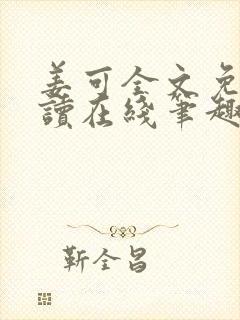 姜可全文免
讀在綫筆趣
靳全昌